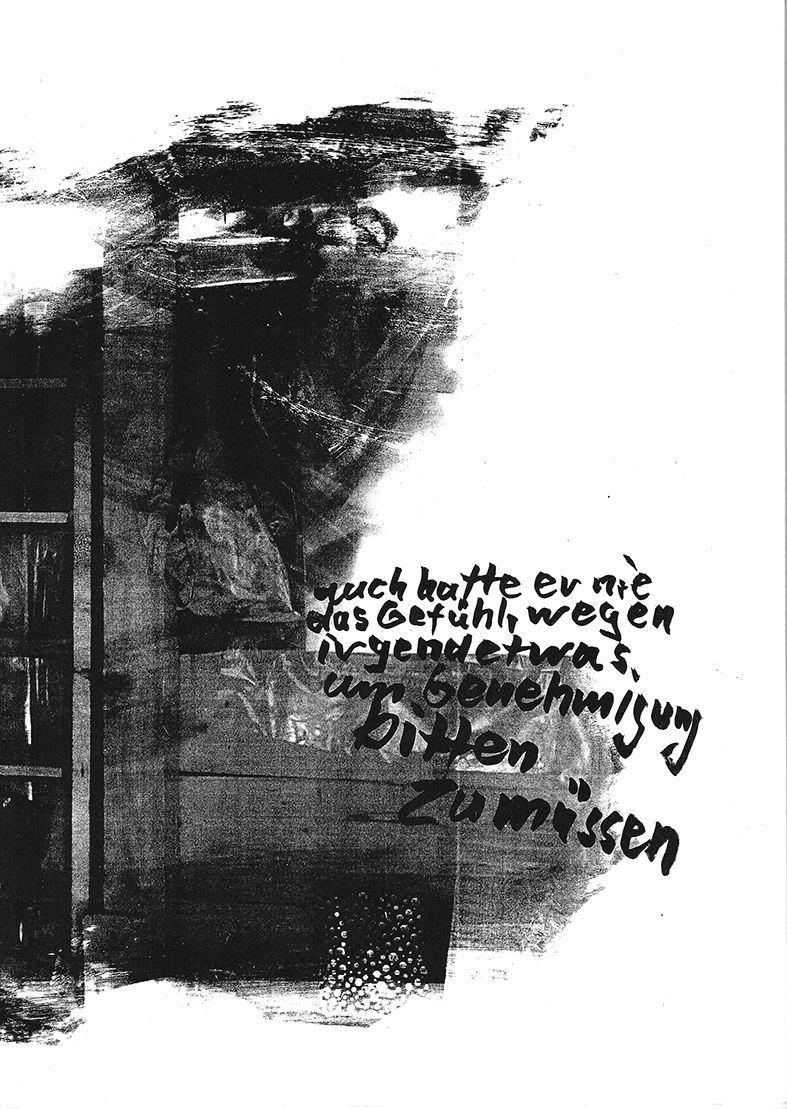 auch hatte er nie
das Gefühl, wegen
irgendetwas,
um Genehmigung
bitten
zumüssen